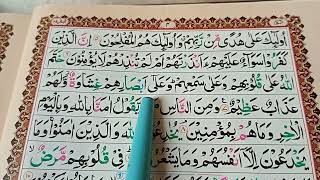 اُولٰٓئِكَ عَلٰى هُدًى مِّنْ رَّبِّهِمْ وَاُولٰٓئِكَ هُمُ الْمُفْلِحُوْنَ اِنَّ الَّذِيْنَ
كَفَرُوْا سَوَآءٌ عَلَيْهِمْ ءَاَنْذَرْتَهُمْ اَمْ لَمْ تُنْذِرْهُمْ لَا يُؤْمِنُوْنَ خَتَمَ
اللّٰهُ عَلٰى قُلُوْبِهِمْ وَعَلٰى سَمْعِهِمْ وَعَلٰٓى اَبْصَارِهِمْ غِشَاوَةٌ وَّلَهُمْ
عَذَابٌ عَظِيْمٌ وَمِنَ النَّاسِ يَّقُوْلُ اٰمَنَّا بِاللّٰهِ وَبِالْيَوْمِ
الْاٰخِرِ وَمَا هُمْ بِمُؤْمِنِيْنَ يُخٰدِعُوْنَ اللّٰهَ وَالَّذِيْنَ اٰمَنُوْا وَمَا
يَخْدَعُوْنَ اِلَّآ اَنْفُسَهُمْ وَمَا يَشْعُرُ فِيْ قُلُوْبِهِمْ مَّرَضٌ